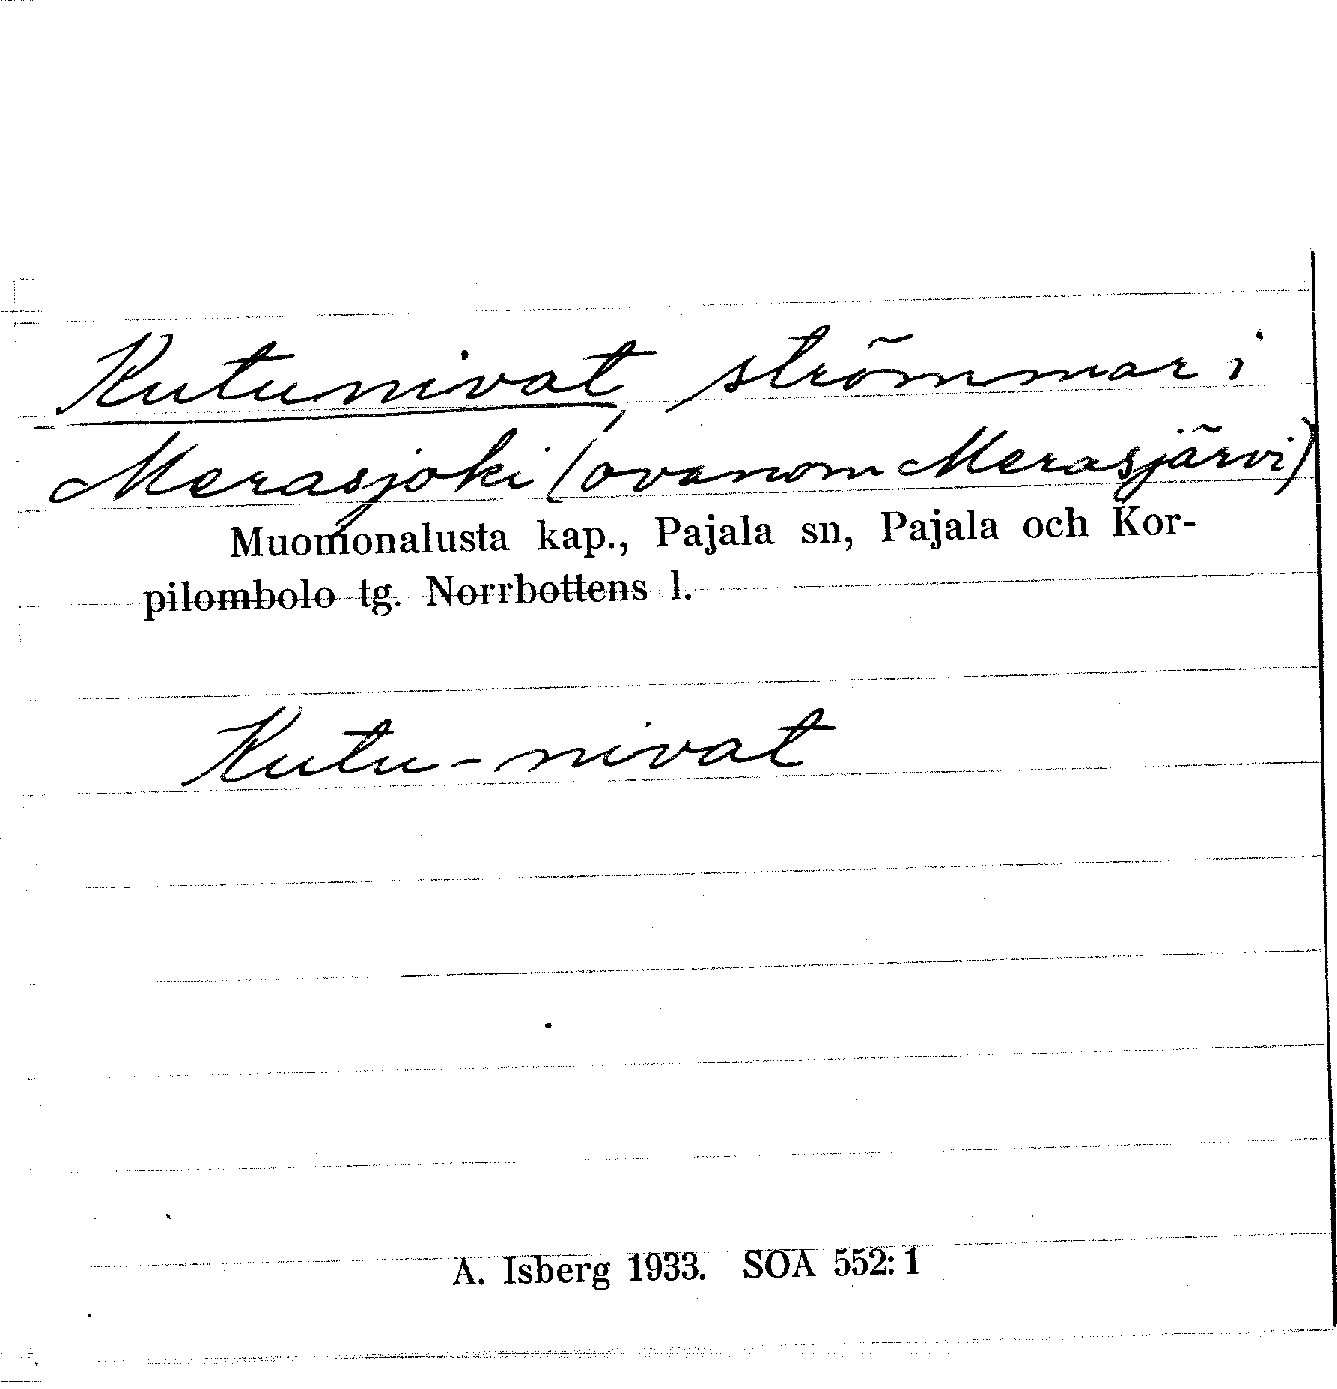 Kutunivat, strömmar i
Merasjoki (ovanom Merasjärvi)
Muonionalusta kap., Pajala sn, Pajala och Kor-
pilombolo tg. Norrbottens l.
Kutu-nivat
A. Isberg 1933. SOA 552:1